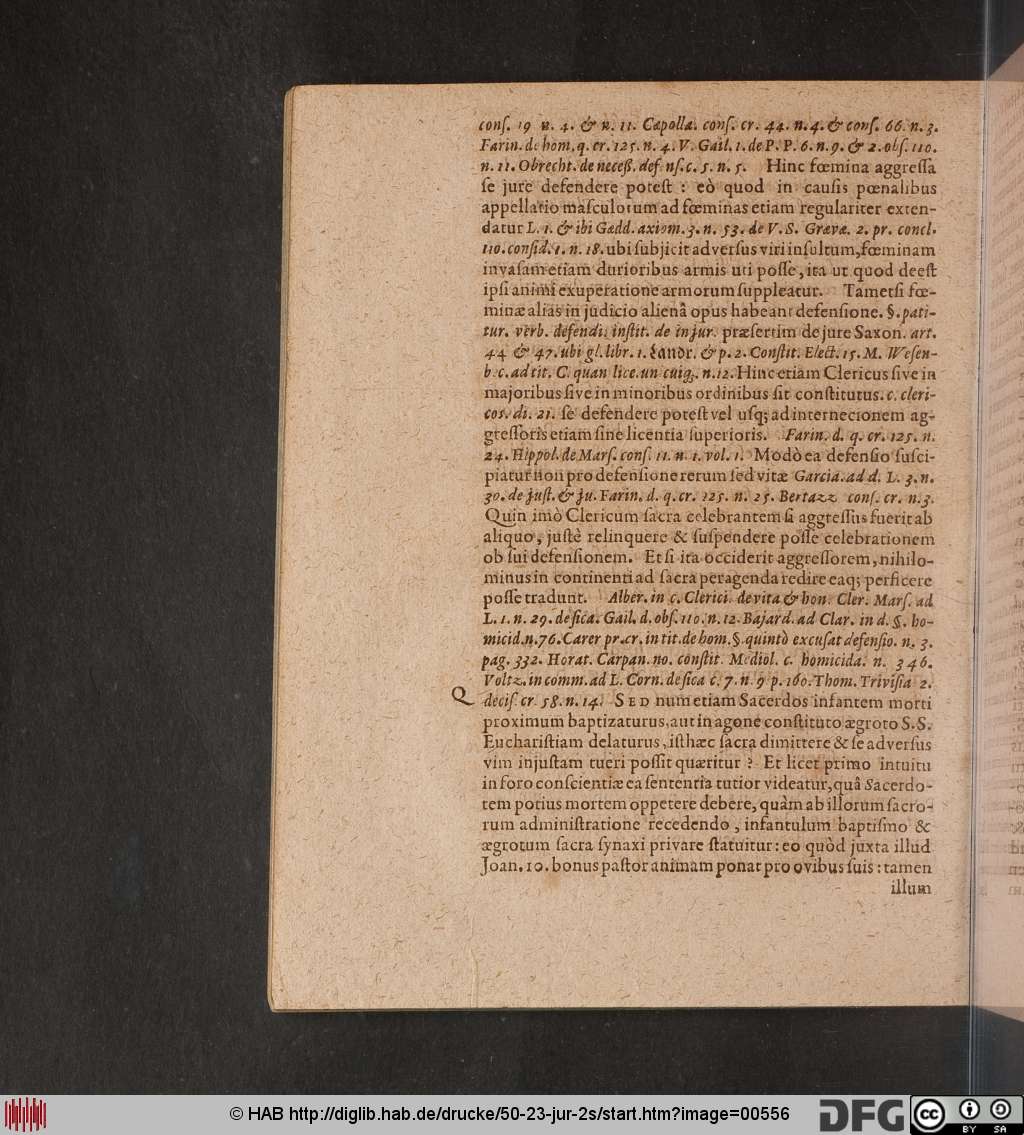 conſ. 19 n. 4. & n. 11. Capolla. conſ. cr. 44. n. 4. & conſ. 66. n. 3.
Farin. de hom. q. cr. 125. n. 4. V. Gail. 1. de P. P. 6. n. 9. & 2. obſ. 110.
n. 11. Obrecht. de neceß. def nſ. c. 5. n. 5. Hinc fœmina aggreſſa
ſe jure defendere poteſt : eò quod in cauſis pœnalibus
appellatio maſculorum ad fœminas etiam regulariter exten-
datur L. 1. & ibi Gædd. axiom. 3. n. 53. de V. S. Græve. 2. pr. concl.
110. conſid. 1. n. 18. ubi ſubjicit adverſus viri inſultum, fœminam
invaſam etiam durioribus armis uti poſſe, ita ut quod deeſt
ipſi animi exuperatione armorum ſuppleatur. Tametſi fœ-
minæ alias in judicio alienâ opus habeant defenſione. §. pati-
tur. verb. defendi. inſtit. de injur. præſertim de jure Saxon. art.
44 & 47. ubi gl. libr. 1. Landr. & p. 2. Conſtit. Elect. 15. M. Weſen-
b. c. ad tit. C. quan lice. un cuiq;. n. 12. Hinc etiam Clericus ſive in
majoribus ſive in minoribus ordinibus ſit conſtitutus. c. cleri-
cos. di. 21. ſe defendere poteſt vel uſq; ad internecionem ag-
greſſoris etiam ſine licentia ſuperioris. Farin. d. q. cr. 125. n.
24. Hippol. de Marſ. conſ. 11. n. 1. vol. 1. Modò ea defenſio ſuſci-
piatur non pro defenſione rerum ſed vitæ Garcia. ad d. L. 3. n.
30. de juſt. & ju. Farin. d. q. cr. 125. n. 25. Bertazz conſ. cr. n. 3.
Quin imò Clericum ſacra celebrantem ſi aggreſſus fuerit ab
aliquo, juſtè relinquere & ſuſpendere poſſe celebrationem
ob ſui defenſionem. Et ſi ita occiderit aggreſſorem, nihilo-
minus in continenti ad ſacra peragenda redire eaq; perficere
poſſe tradunt. Alber. in c. Clerici. de vita & hon. Cler. Marſ. ad
L. 1. n. 29. de ſica. Gail. d. obſ. 110. n. 12. Bajard. ad Clar. in d. §. ho-
micid. n. 76. Carer pr. cr. in tit. de hom. §. quintò excuſat defenſio. n. 3.
pag. 332. Horat. Carpan. no. conſtit. Mediol. c. homicida. n. 346.
Voltz. in comm. ad L. Corn. de ſica c. 7. n. 9 p. 160. Thom. Triviſia 2.
Q deciſ. cr. 58. n. 14. SED num etiam Sacerdos infantem morti
proximum baptizaturus, aut in agone conſtituto ægroto S.S.
Euchariſtiam delaturus, iſthæc ſacra dimittere & ſe adverſus
vim injuſtam tueri poſſit quæritur ? Et licet primo intuitu
in foro conſcientiæ ea ſententia tutior videatur, quâ Sacerdo-
tem potius mortem oppetere debere, quàm ab illorum ſacro-
rum adminiſtratione recedendo, infantulum baptiſmo &
ægrotum ſacra ſynaxi privare ſtatuitur : eo quòd juxta illud
Joan. 10. bonus paſtor animam ponat pro ovibus ſuis : tamen
illum
© HAB http://diglib.hab.de/drucke/50-23-jur-2s/start.htm?image=00556
DFG
cc BY SA